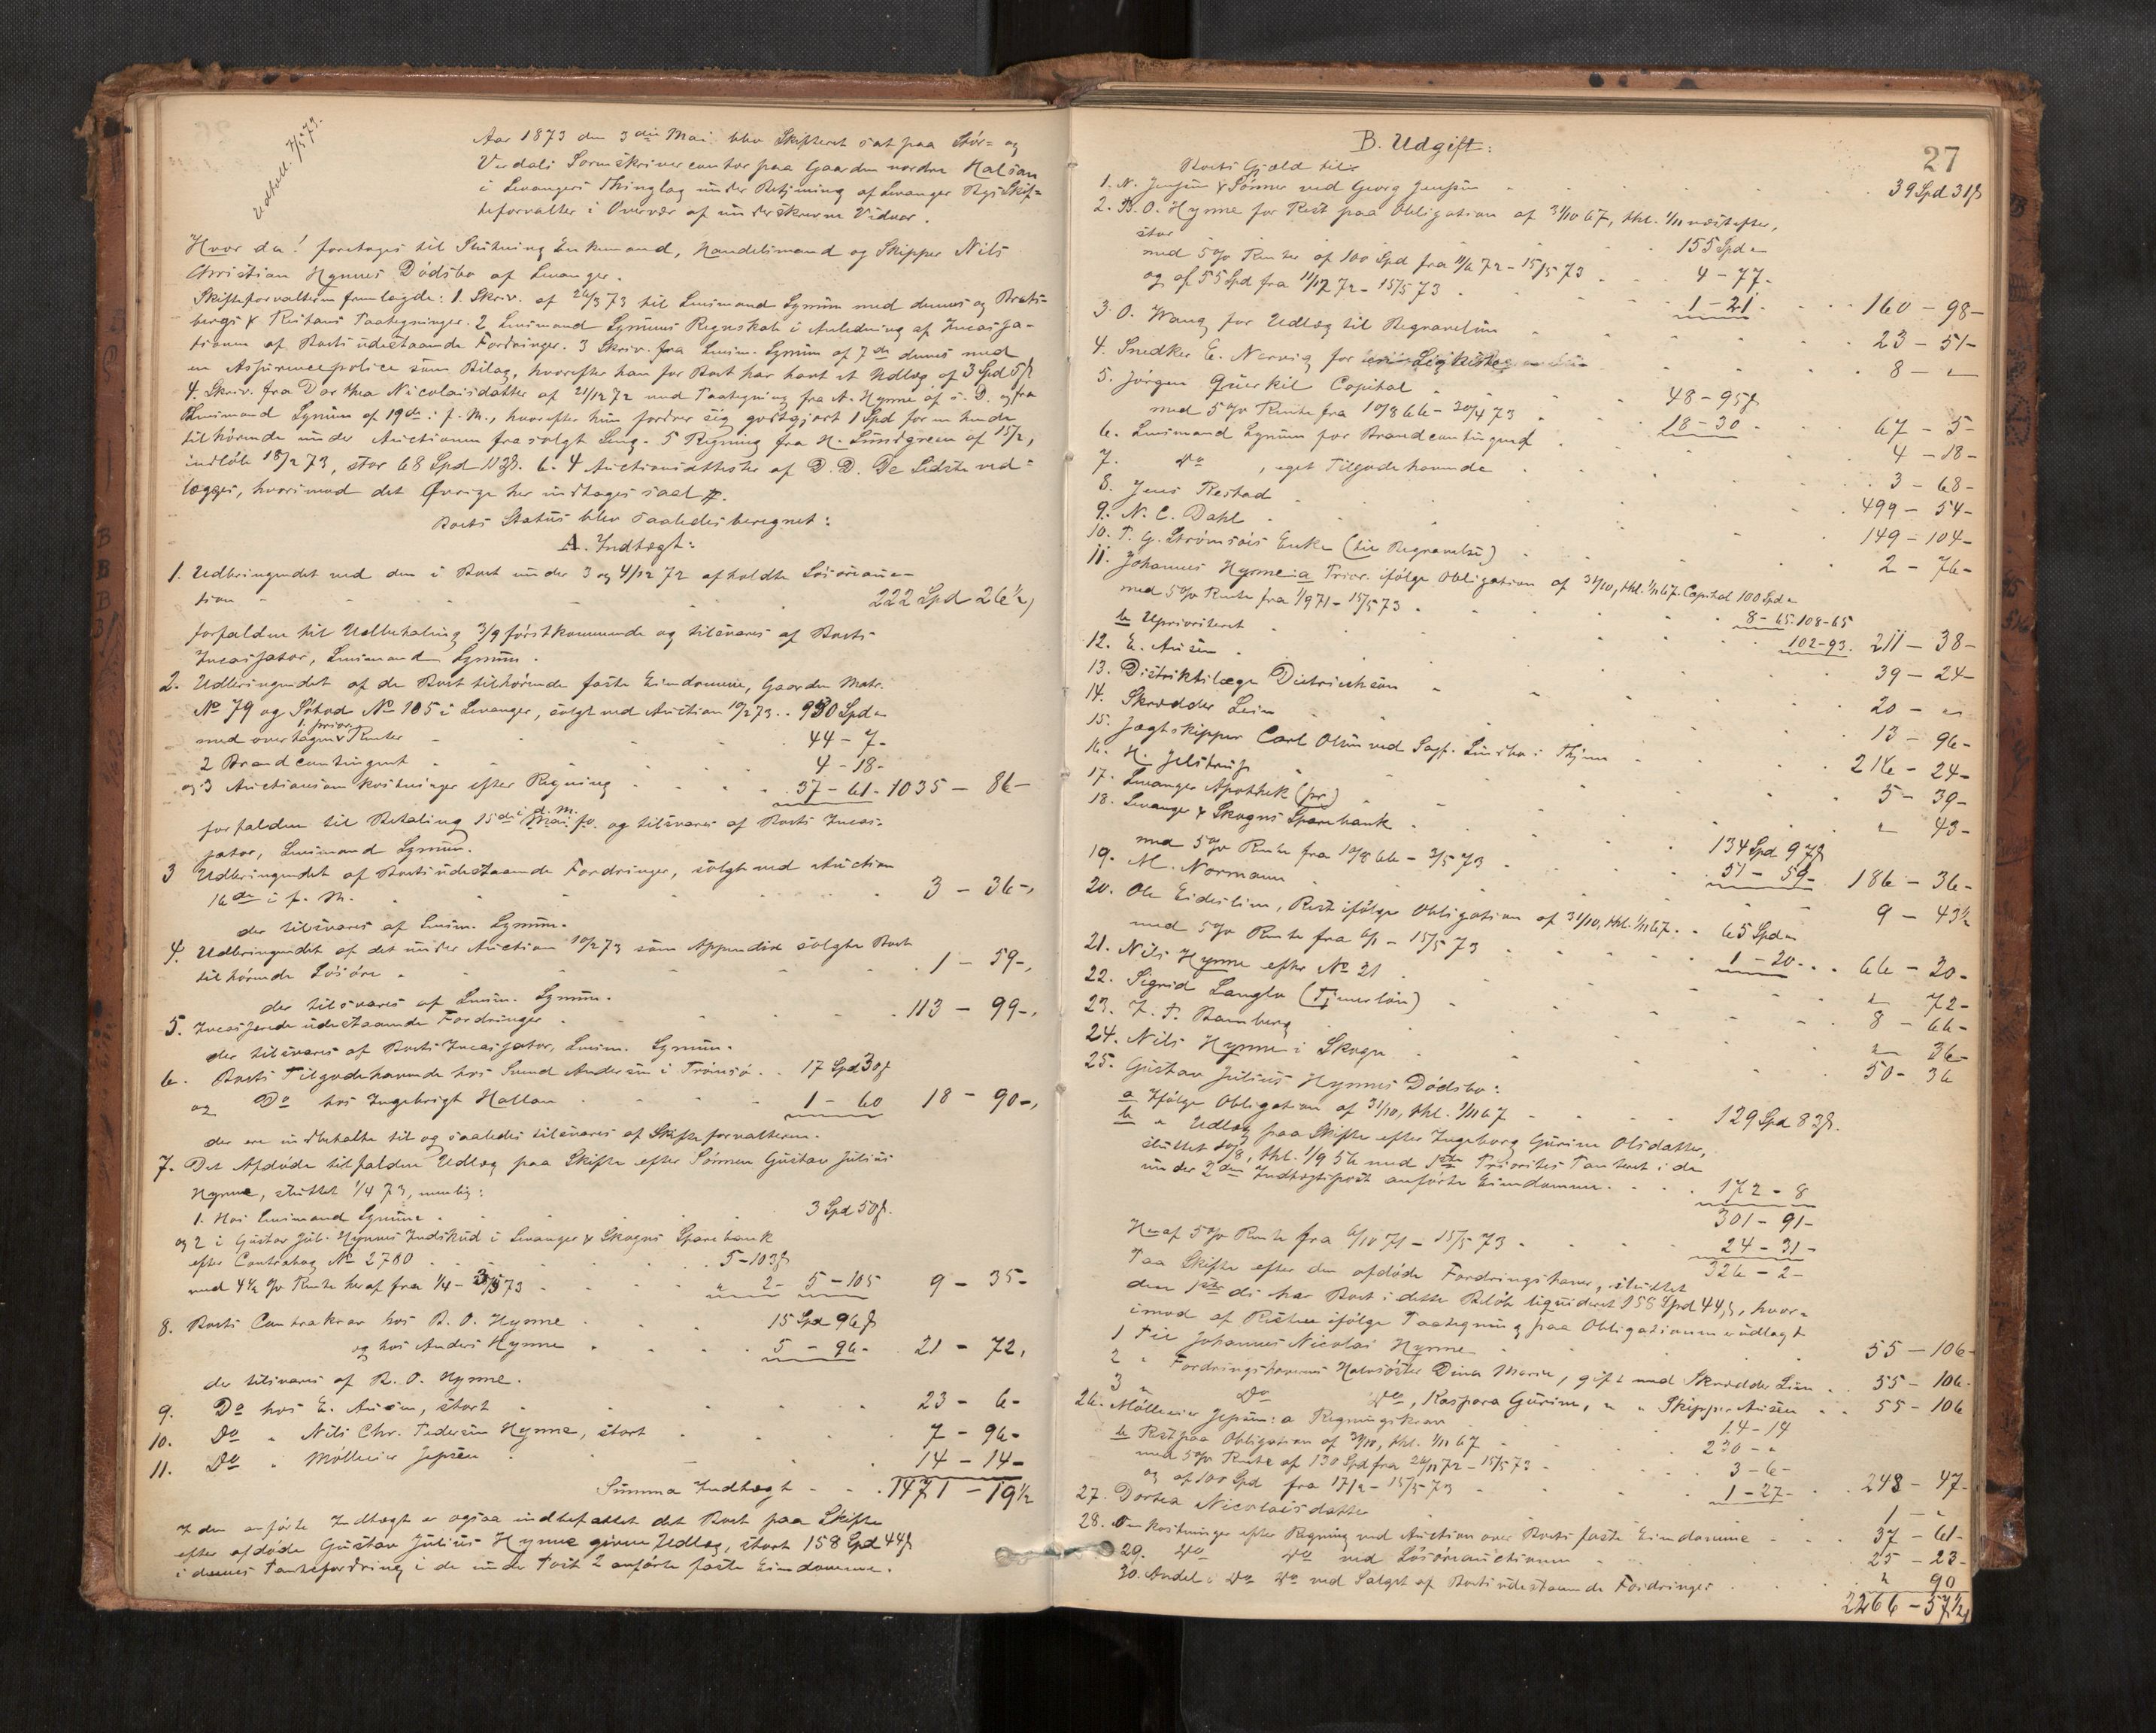 Udhell. 7/5 73.
Aar 1873 den 3die Mai blev Skifteret sat paa Stör- og
Verdals Sorenskrivercontor paa Gaarden nordre Halsan
i Levangers Thinglag under Betjening af Levanger Byes Skif-
teforvalter i Overvær af underskrevne Vidner.
Hvor da! foretoges til Slutning Enkemand, Handelsmand og Skipper Nils
Christian Hynnes Dödsbo af Levanger.
Skifteforvalteren fremlagde: 1. Skriv. af 26/3 73 til Lensmand Lynum med dennes og Brats-
bergs & Restads Paategninger. 2 Lensmand Lynums Regnskab i Anledning af Incassa-
tionen af Boets udestaaende Fordringer. 3 Skriv. fra Lensm. Lynum af 7de dennes med
en Assurancepolice som Bilag, hvorefter han for Boet har havt et Udlæg af 3 Spd 5 ß
4. Skriv. fra Dorthea Nicolaisdatter af 21/12 72 med Paategning fra N. Hynne af s. D. og fra
Lensmand Lynum af 19de i f. M., hvorefter hun fordrer sig godtgjort 1 Spd for en hende
tilhörende under Auctionen frasolgt Seng. 5 Regning fra H. Lundgreen af 15/2,
indlöb 18/2 73, stor 68 Spd 113 ß. 6. 4 Auctionsattester af D. D. De Sidste ved-
lægges, hvorimod det Øvrige her indtages saal #.
Boets Status blev saaledes beregnet:
A. Indtægt:
1. Udbringendet ved den i Boet under 3 og 4/12 72 afholdte Lösöreauc-
tion - 222 Spd 26½,
forfalden til Udbetaling 3/9 förstkommende og tilsvares af Boets
Incassator, Lensmand Lynum.
2. Udbringendet af de Boet tilhörende faste Eiendomme, Gaarden Matr.
No 79 og Söbod No 105 i Levanger, solgt ved Auction 10/2 73 .. 950 Spd "
med overtagne 1. prior. Renter - 44 - 7 -
2 Brandcontingent 4 - 18 -
og 3 Auctionsomkostninger efter Regning 37 - 61 - 1035 - 86 -
forfalden til Betaling 15de i d. M. Mai fo. og tilsvares af Boets Incas-
sator, Lensmand Lynum.
3 Udbringendet af Boets udestaaende Fordringer, solgt ved Auction
16de i f. M. 3 - 36 -,
der tilsvares af Lensm. Lynum.
4. Udbringendet af det under Auction 10/2 73 som Appendix solgte Boet
tilhörende Lösöre 1 - 59 -,
der tilsvares af Lensm. Lynum.
5. Incasserede udestaaende Fordringer 113 - 99 -,
der tilsvares af Boets Incassator, Lensm. Lynum.
6. Boets Tilgodehavende hos Svend Andersen i Tromsö .. 17 Spd 30 ß
og Do hos Ingebrigt Hallan 1 - 60 18 - 90 -,
der ere indbetalte til og saaledes tilsvares af Skifteforvalteren.
7. Det Afdöde tilfaldne Udlæg paa Skifte efter Sönnen Gustav Julius
Hynne, sluttet 1/4 73, nemlig:
1. Hos Lensmand Lynum 3 Spd 50 ß.
og 2 i Gustav Jul. Hynnes Indskud i Levanger & Skogns Sparebank
efter Contrabog No 2780 5 - 103 ß
med 4½ % Rente heraf fra 1/4 - 3/5 73 " 2 - 5 - 105 9 - 35 -
8. Boets Contrakrav hos B. O. Hynne 15 Spd 96 ß
og hos Anders Hynne 5 - 96 - 21 - 72,
der tilsvares af B. O. Hynne.
9. Do hos E. Ausen, stort 23 - 6 -
10. Do " Nils Chr. Pedersen Hynne, stort 7 - 96 -
11. Do " Möllner Jepsen 14 - 14 -
Summa Indtægt 1471 - 19½
I den anförte Indtægt er ogsaa indbefattet det Boet paa Skifte
efter afdöde Gustav Julius Hynne givne Udlæg, stort 158 Spd 44 ß
i dennes Pantefordring i de under Post 2 anförte faste Eiendomme.
27
B. Udgift:
Boets Gjæld til:
1. N. Jensen & Sönner ved Georg Jenssen 39 Spd 31 ß
2. B. O. Hynne for Rest paa Obligation af 31/10 67, thl. 1/11 næstefter,
stor 155 Spd "
med 5 % Renter af 100 Spd fra 11/6 72 - 15/5 73 4 - 77 -
og af 55 Spd fra 11/12 72 - 15/5 73 1 - 21 . 160 - 98 -
3. O. Wang for Udlæg til Begravelsen 23 - 51 -
4. Snedker E. Narvig for Ligkiste 8 - "
5. Jörgen Querkil Capital 48 - 95 ß
med 5 % Rente fra 10/8 66 - 30/4 73 18 - 30 67 - 5 -
6. Lensmand Lynum for Brandcontingent 4 - 18 -
7. Do , eget Tilgodehavende 3 - 68 -
8. Jens Restad 499 - 54 -
9. N. C. Dahl 149 - 104 -
10. P. G. Strömsöis Enke (til Begravelse) 2 - 76 -
11. Johannes Hynne: a Prior. ifölge Obligation af 31/10, thl. 1/11 67. Capital 100 Spd "
med 5 % Rente fra 1/9 71 - 15/5 73 8 - 65. 108 - 65
b Uprioriteret 102 - 93. 211 - 38 -
12. E. Ausen 39 - 24 -
13. Distriktslæge Dietrichson 20 - "
14. Skrædder Lein 13 - 96 -
15. Jagtskipper Carl Olsen ved Sagf. Lundbo i Thjem 216 - 24 -
16. H. Jelstrup 5 - 39 -
17. Levanger Apothek (pr.) " 43 -
18. Levanger & Skogns Sparebank 134 Spd 97 ß
med 5 % Rente fra 10/8 66 - 3/5 73 51 - 59 - 186 - 36 -
19. M. Normann 9 - 43½
20. Ole Eideslim, Rest ifölge Obligation af 31/10, thl. 1/11 67 .. 65 Spd "
med 5 % Rente fra 6/1 - 15/5 73 1 - 20 .. 66 - 20 -
21. Nils Hynne efter No 21 " 72 -
22. Sigrid Langlo (Tjenerlön) 8 - 66 -
23. F. P. Bamberg " 36 -
24. Nils Hynne i Skogn 50 - 36
25. Gustav Julius Hynnes Dödsbo:
a Ifölge Obligation af 31/10, thl. 1/11 67 129 Spd 83 ß.
b " Udlæg paa Skifte efter Ingeborg Gurine Olsdatter,
sluttet 30/8, thl. 1/9 56 med 1ste Prioritets Panteret i de
under 2den Indtægtspost anförte Eiendomme 172 - 8
301 - 91 -
Heraf 5 % Rente fra 6/10 71 - 15/5 73 24 - 31 -
326 - 2 -
Paa Skifte efter den afdöde Fordringshaver, sluttet
den 1ste ds har Boet i dette Belöb liquideret 158 Spd 44 ß, hvor-
imod af Resten ifölge Paategning paa Obligationen er udlagt
1 Til Johannes Nicolai Hynne 55 - 106 -
2 " Fordringshaverens Halvsöster Dina Marie, gift med Skrædder Lein .. 55 - 106 -
3 " Do Do, Kaspara Gurine, " " Skipper Ausen .. 55 - 106
26. Möllner Jepsen: a Regningskrav 14 - 14
b Rest paa Obligation af 31/10, thl. 1/11 67 230 - "
med 5 % Rente af 130 Spd fra 26/11 72 - 15/5 73 3 - 6 -
og af 100 Spd fra 17/2 - 15/5 73 1 - 27 - 248 - 47 -
27. Dortea Nicolaisdatter 1 - "
28. Omkostninger efter Regning ved Auction over Boets faste Eiendomme 37 - 61 -
29. Do Do ved Lösöreauctionen 25 - 23 -
30. Andel i Do Do ved Salget af Boets udestaaende Fordringer " 90
2266 - 57½